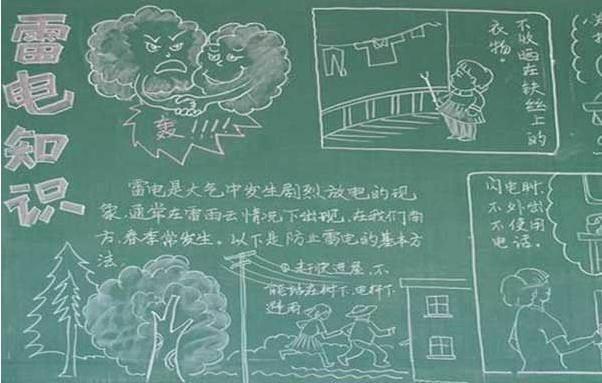 雷电知识
轰!!!!
不收晒在铁丝上的
衣物。
雷电是大气中发生剧烈放电的现
象,通常在雷雨云情况下出现,在我们南
方,春季常发生。以下是防止雷电的基本方
法。
①赶快进屋,不
能站在树下、电杆下
避雨
闪电时,
不外出
不使用
电话。